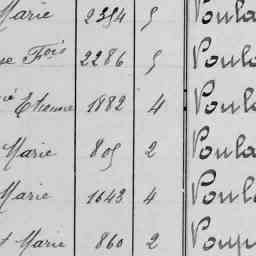 Marie 2354 5 Poula
se Fois 2286 5 Poula
Etienne 1882 4 Poula
Marie 805 2 Poula
Marie 1643 4 Poula
t Marie 860 2 Poup